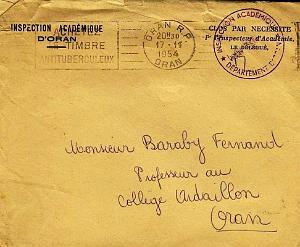 INSPECTION ACADÉMIQUE
D'ORAN
TIMBRE
ANTITUBERCULEUX
ORAN R.P.
20H30
17-11
1954
ORAN
CLOS PAR NECESSITE
Pr l'Inspecteur d'Académie,
LE DÉLÉGUÉ,
INSPECTION ACADÉMIQUE
DÉPARTEMENT
Monsieur Baraby Fernand
Professeur au
Collège Ardaillon
Oran